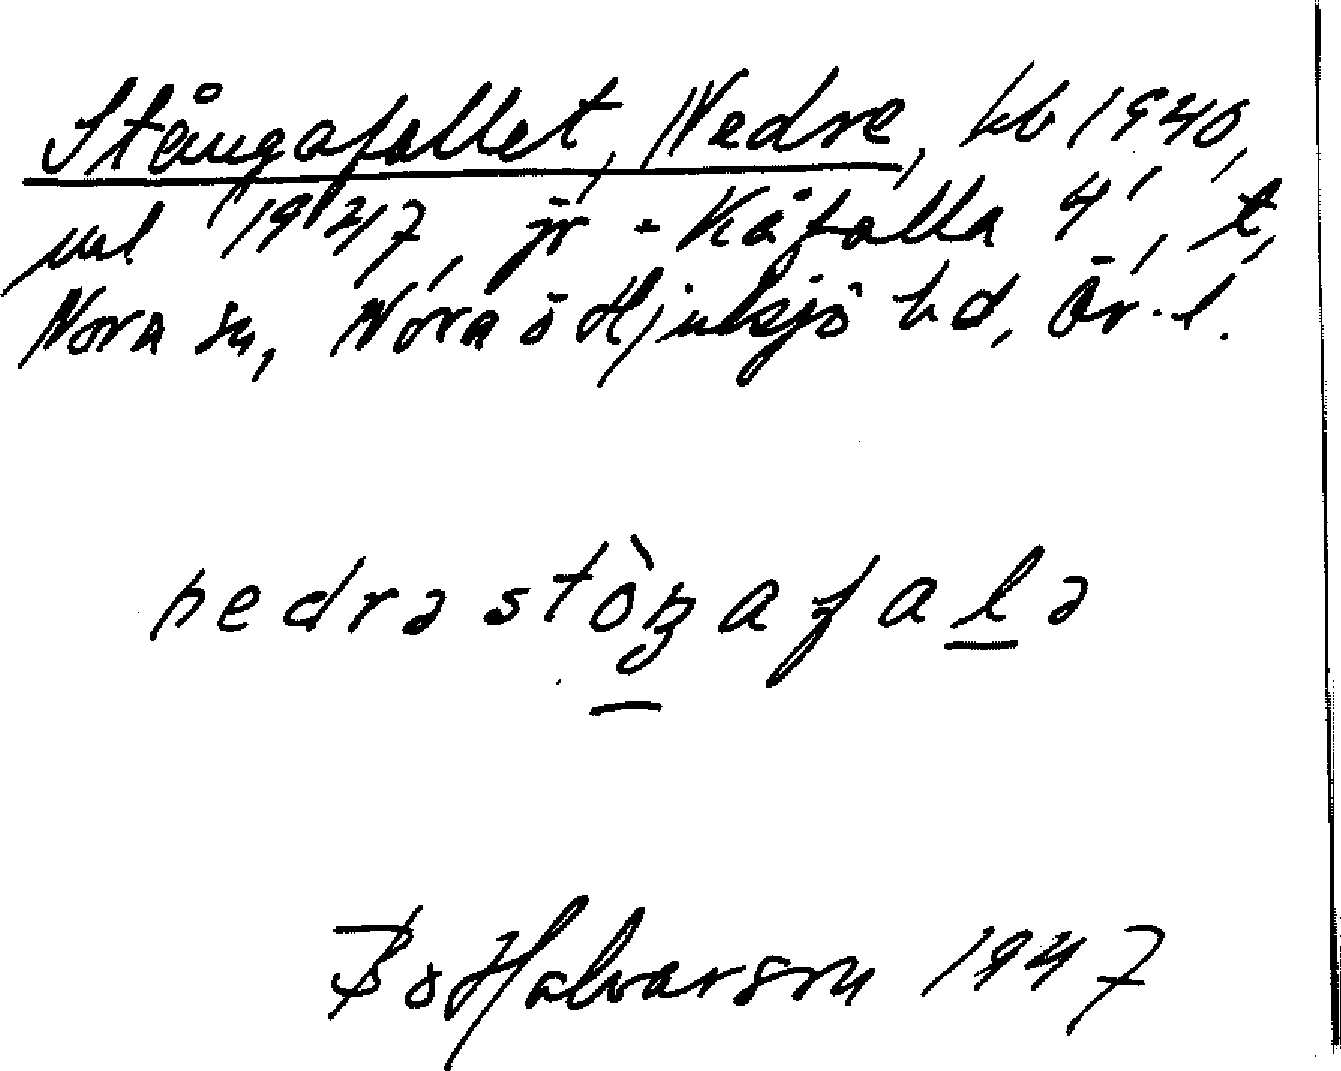 Stångafallet, Nedre, kb 1940,
uul 1947, jr - Kåfalla 4¹, t,
Nora sn, Nora ö Hjulsjö hd, Ör. l.
nedrə stòŋafalə
Bo Halvarson 1947